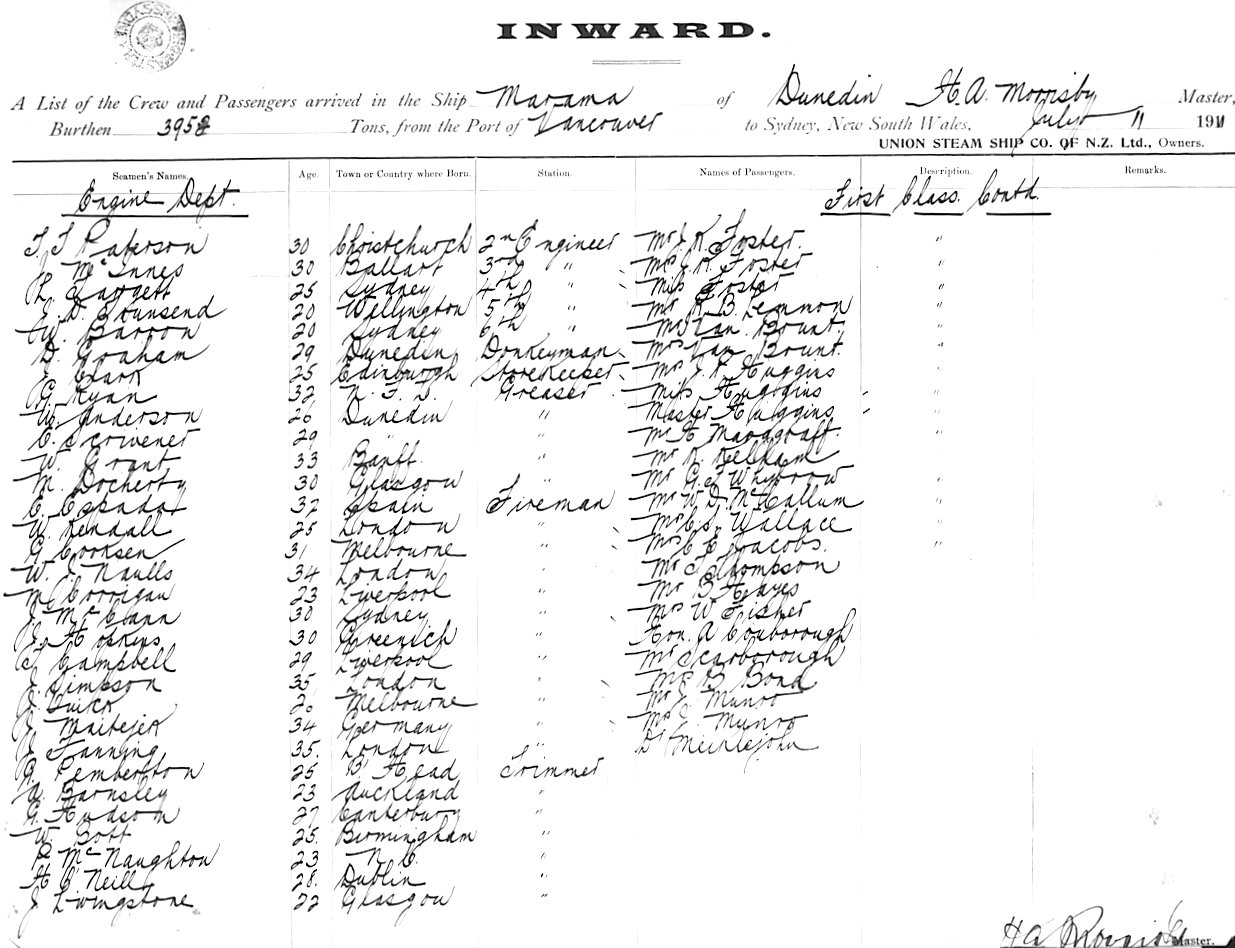 INWARD.
A List of the Crew and Passengers arrived in the Ship Marama of Dunedin H.A. Morrisby Master,
Burthen 3958 Tons, from the Port of Vancouver to Sydney, New South Wales, July 11 1911
UNION STEAM SHIP CO. OF N.Z. Ltd., Owners.
Seamen's Names. Age. Town or Country where Born. Station. Names of Passengers. Description. Remarks.
Engine Dept. First Class. Contd.
Paterson 30 Christchurch 2nd Engineer Mr J. R. Foster. "
McInnes 30 Ballart 3rd " Mrs J. R. Foster "
25 Sydney 4th " Miss Foster "
D. Townsend 20 Wellington 5th " Mr R. B. Lemmon "
W. Barron 20 Sydney 6th " Mr Van Brunt "
D. Graham 29 Dunedin Donkeyman Mrs Van Brunt "
J. Clark 25 Edinburgh Storekeeper Mrs J. R. Huggins "
G. Ryan 32 Greaser Miss Huggins "
W. Anderson 26 Dunedin " Master Huggins "
29 " " Mr H "
W. Grant 33 Banff. " Mr R. Kelham "
M. Docherty 30 Glasgow " Mr G. F. Whybrow "
E. Espada 32 Spain Fireman Mr W. D. McCallum "
W. Kendall 25 London " Mrs C. S. Wallace "
G. Cooksen 31 Melbourne " Mrs C. E. Jacobs. "
W. J. Naulls 34 London " Mr T Thompson
M. Corrigan 23 Liverpool " Mr B Hayes
J. McCann 30 Sydney " Mrs W Fisher
J. Hopkins 30 Greenich " Hon. A Coxborough
C. Campbell 29 Liverpool " Mr Scarborough
J. Simpson 35 London " Mrs B Bond
J. Quick 20 Melbourne " Mr J. Munro
J. Maitejek 34 Germany " Mrs J. Munro
J. Fanning 35. London " Dr Meiklejohn
G. Pemberton 25 B. Head Trimmer
A. Barnsley 23 Auckland "
G. Hudson 27 Canterbury "
W. Bott 25. Birmingham "
P. McNaughton 23 "
H. O'Neill 28. Dublin "
J Livingstone 22 Glasgow "
H A Morrisby Master.